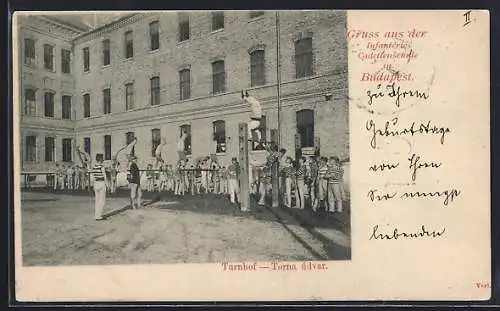 II
Gruss aus der
Infanterie
Cadettenschule
zu
Budapest.
zu Ihrem
Geburtstage
von Ihren
Sie innigst
liebenden
Turnhof — Torna udvar.
Verl.